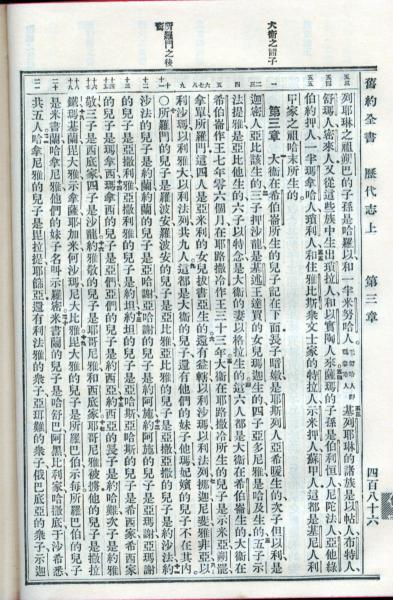 舊約全書 歷代志上 第三章 四百八十六
大衛之諸子
所羅門之後裔
列耶琳之祖朔巴的子孫是哈羅以和一半米努哈人 基列耶琳的諸族是以帖人布特人
舒瑪人密來人又從這些族中生出瑣拉人和以實陶人來薩瑪的子孫是伯利恒人尼陀法人亞他綠
伯約押人一半瑪拿哈人瑣利人和住雅比斯衆文士家的特拉人示米押人蘇甲人這都是基尼人利
甲家之祖哈末所生的
第三章 大衛在希伯崙所生的兒子記在下面長子暗嫩是耶斯列人亞希暖生的次子但以利是
迦密人亞比該生的三子押沙龍是基述王達買的女兒瑪迦生的四子亞多尼雅是哈及生的五子示
法提雅是亞比他生的六子以特念是大衛的妻以格拉生的這六人都是大衛在希伯崙生的大衛在
希伯崙作王七年零六個月在耶路撒冷作王三十三年大衛在耶路撒冷所生的兒子是示米亞朔罷
拿單所羅門這四人是亞米利的女兒拔書亞生的還有益轄以利沙瑪以利法列挪迦尼斐雅非亞以
利沙瑪以利雅大以利法列共九人這都是大衛的兒子還有他們的妹子他瑪妃嬪的兒子不在其內
○所羅門的兒子是羅波安羅波安的兒子是亞比雅亞比雅的兒子是亞撒亞撒的兒子是約沙法約
沙法的兒子是約蘭約蘭的兒子是亞哈謝亞哈謝的兒子是約阿施約阿施的兒子是亞瑪謝亞瑪謝
的兒子是亞撒利雅亞撒利雅的兒子是約坦約坦的兒子是亞哈斯亞哈斯的兒子是希西家希西家
的兒子是瑪拿西瑪拿西的兒子是亞們亞們的兒子是約西亞約西亞的長子是約哈難次子是約雅
敬三子是西底家四子是沙龍約雅敬的兒子是耶哥尼雅和西底家耶哥尼雅被擄他的兒子是撒拉
鐵瑪基蘭毘大雅示拿薩耶加米何沙瑪尼大比雅毘大雅的兒子是所羅巴伯示每所羅巴伯的兒子
是米書蘭哈拿尼雅他們的妹子名叫示羅密米書蘭的兒子是哈舒巴阿黑比利家哈撒底于沙希悉
共五人哈拿尼雅的兒子是毘拉提耶篩亞還有利法雅的衆子亞珥難的衆子俄巴底亞的衆子示迦